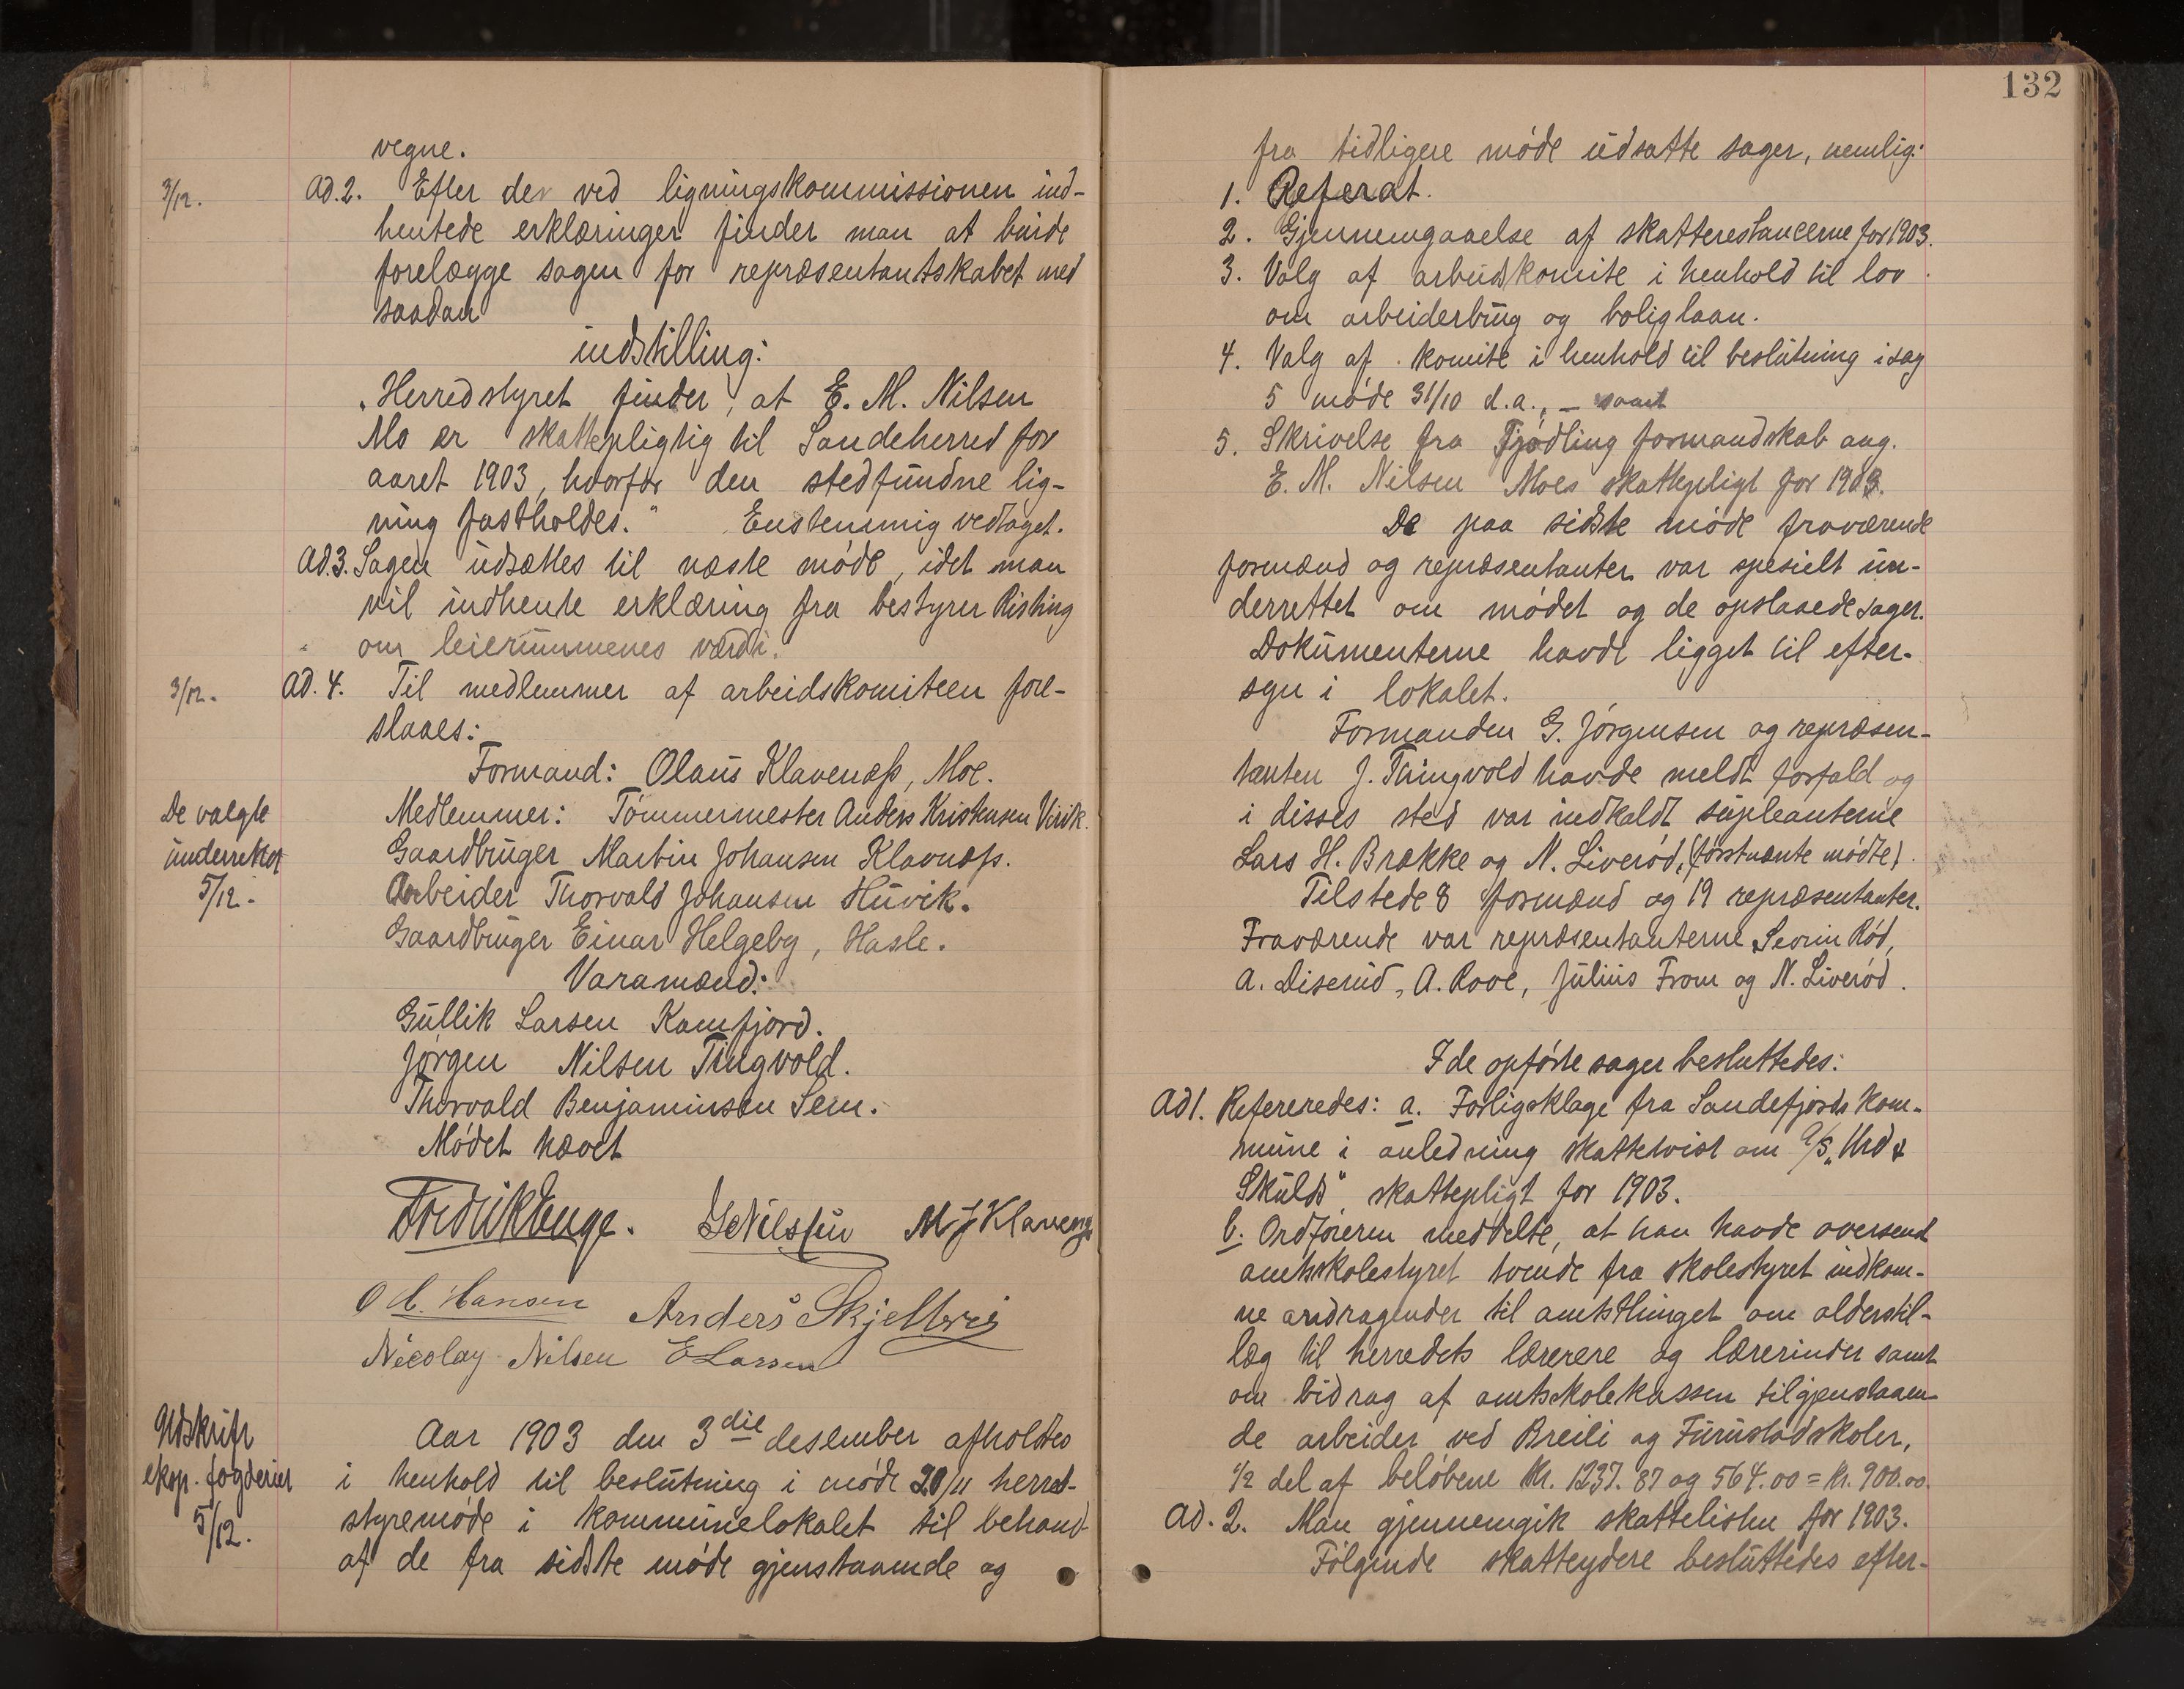 vegne.
3/12.
Ad. 2. Efter der ved ligningskommissionen ind-
hentede erklæringer finder man at burde
forelægge sagen for repræsentantskabet med
saadan
indstilling:
"Herredstyret finder, at E. M. Nilsen
Mo er skattepligtig til Sandeherred for
aaret 1903, hvorfor den stedfundne lig-
ning fastholdes." Enstemmig vedtaget.
Ad. 3. Sagen udsættes til næste møde, idet man
vil indhente erklæring fra bestyrer Risting
om leierummenes værdi.
3/12.
Ad. 4. Til medlemmer af arbeidskomiteen fore-
slaaes:
Formand: Olaus Klavenæss, Moe.
De valgte
underrettet
5/12.
Medlemmer: Tømmermester Anders Kristensen Virik.
Gaardbruger Martin Johansen Klavnæss.
Arbeider Thorvald Johansen Huvik.
Gaardbruger Einar Helgeby, Hasle.
Varamænd:
Gullik Larsen Kamfjord.
Jørgen Nilsen Tingvold.
Thorvald Benjaminsen Sem.
Mødet hævet
Fredrik Enge. G Nilssen M J Klaveng
O A. Hansen Anders Skjellvei
Nicolay Nilsen E Larsen
Udskrift
eksp. fogderiet
5/12.
Aar 1903 den 3die desember afholdtes
i henhold til beslutning i møde 20/11 herred-
styremøde i kommunelokalet til behand
af de fra sidste møde gjenstaaende og
132
fra tidligere møde udsatte sager, nemlig:
1. Referat.
2. Gjennemgaaelse af skatterestancerne for 1903.
3. Valg af arbeidskomite i henhold til lov
om arbeiderbrug og boliglaan.
4. Valg af komite i henhold til beslutning i sag
5 møde 31/10 d.a., – samt
5. Skrivelse fra Fjødling formandskab ang.
E. M. Nilsen Moes skattepligt for 1903.
De paa sidste møde fraværende
formænd og repræsentanter var spesielt un-
derrettet om mødet og de opslaaede sager.
Dokumenterne havde ligget til efter-
syn i lokalet.
Formanden G. Jørgensen og repræsen-
tanten J. Thingvold havde meldt forfald og
i disses sted var indkaldt supleanterne
Lars H. Brække og N. Liverød, (førstnævnte mødte).
Tilstede 8 formænd og 19 repræsentanter.
Fraværende var repræsentanterne Sevrin Rød,
A. Diserud, A. Rove, Julius From og N. Liverød.
I de opførte sager besluttedes:
Ad 1. Refereredes: a. Forligsklage fra Sandefjords kom-
mune i anledning skattetvist om A/S "Urd &
Skulds" skattepligt for 1903.
b. Ordføreren meddelte, at han havde oversend
amtsskolestyret tvende fra skolestyret indkom-
ne andragender til amtsthinget om alderstil-
læg til herredets lærerere og lærerinder samt
om bidrag af amtsskolekassen til gjenstaaen-
de arbeider ved Breili og Furustadskoler,
1/2 del af beløbene Kr. 1237.87 og 564.00 = Kr. 900.00.
Ad. 2. Man gjennemgik skattelisten for 1903.
Følgende skatteydere besluttedes efter-